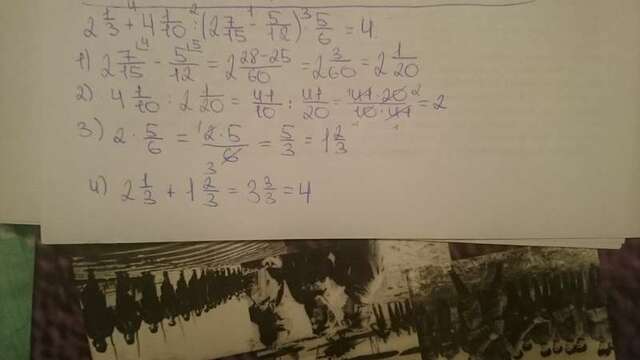 2 1/3 + 4 1/10 : (2 7/15 - 5/12) · 5/6 = 4
1) 2 7/15 - 5/12 = 2 28-25/60 = 2 3/60 = 2 1/20
2) 4 1/10 : 2 1/20 = 41/10 : 41/20 = 41·20/10·41 = 2
3) 2 · 5/6 = 2·5/6 = 5/3 = 1 2/3
4) 2 1/3 + 1 2/3 = 3 3/3 = 4